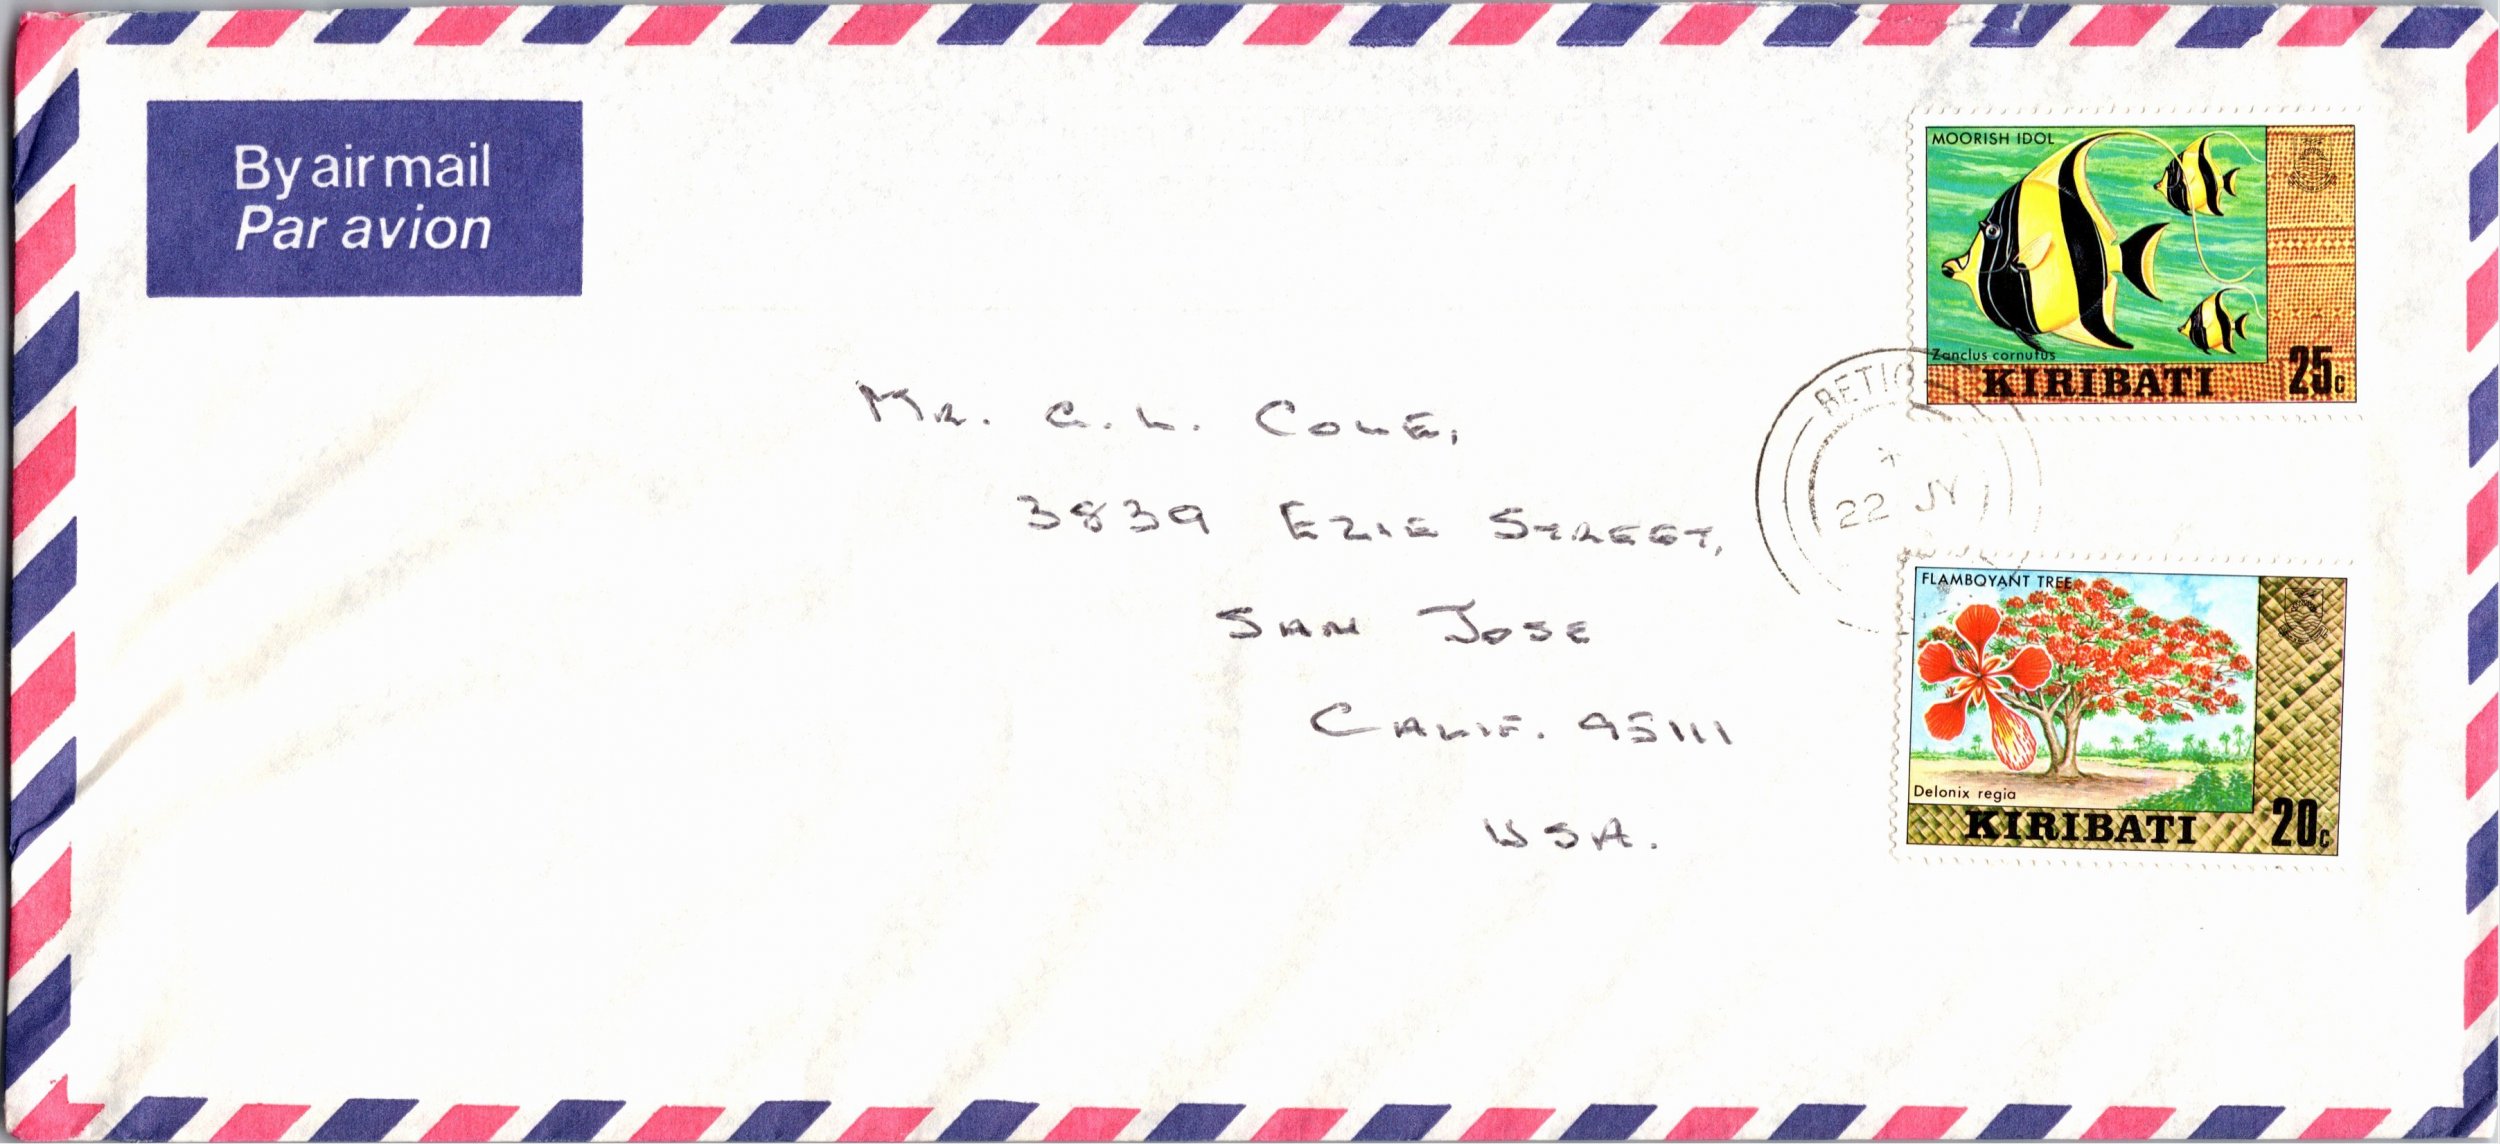 By air mail
Par avion
MOORISH IDOL
Zanclus cornutus
KIRIBATI 25c
BETIO
22 JY
MR. C. L. COLE,
3839 EZIE STREET,
SAN JOSE
CALIF. 95111
USA.
FLAMBOYANT TREE
Delonix regia
KIRIBATI 20c